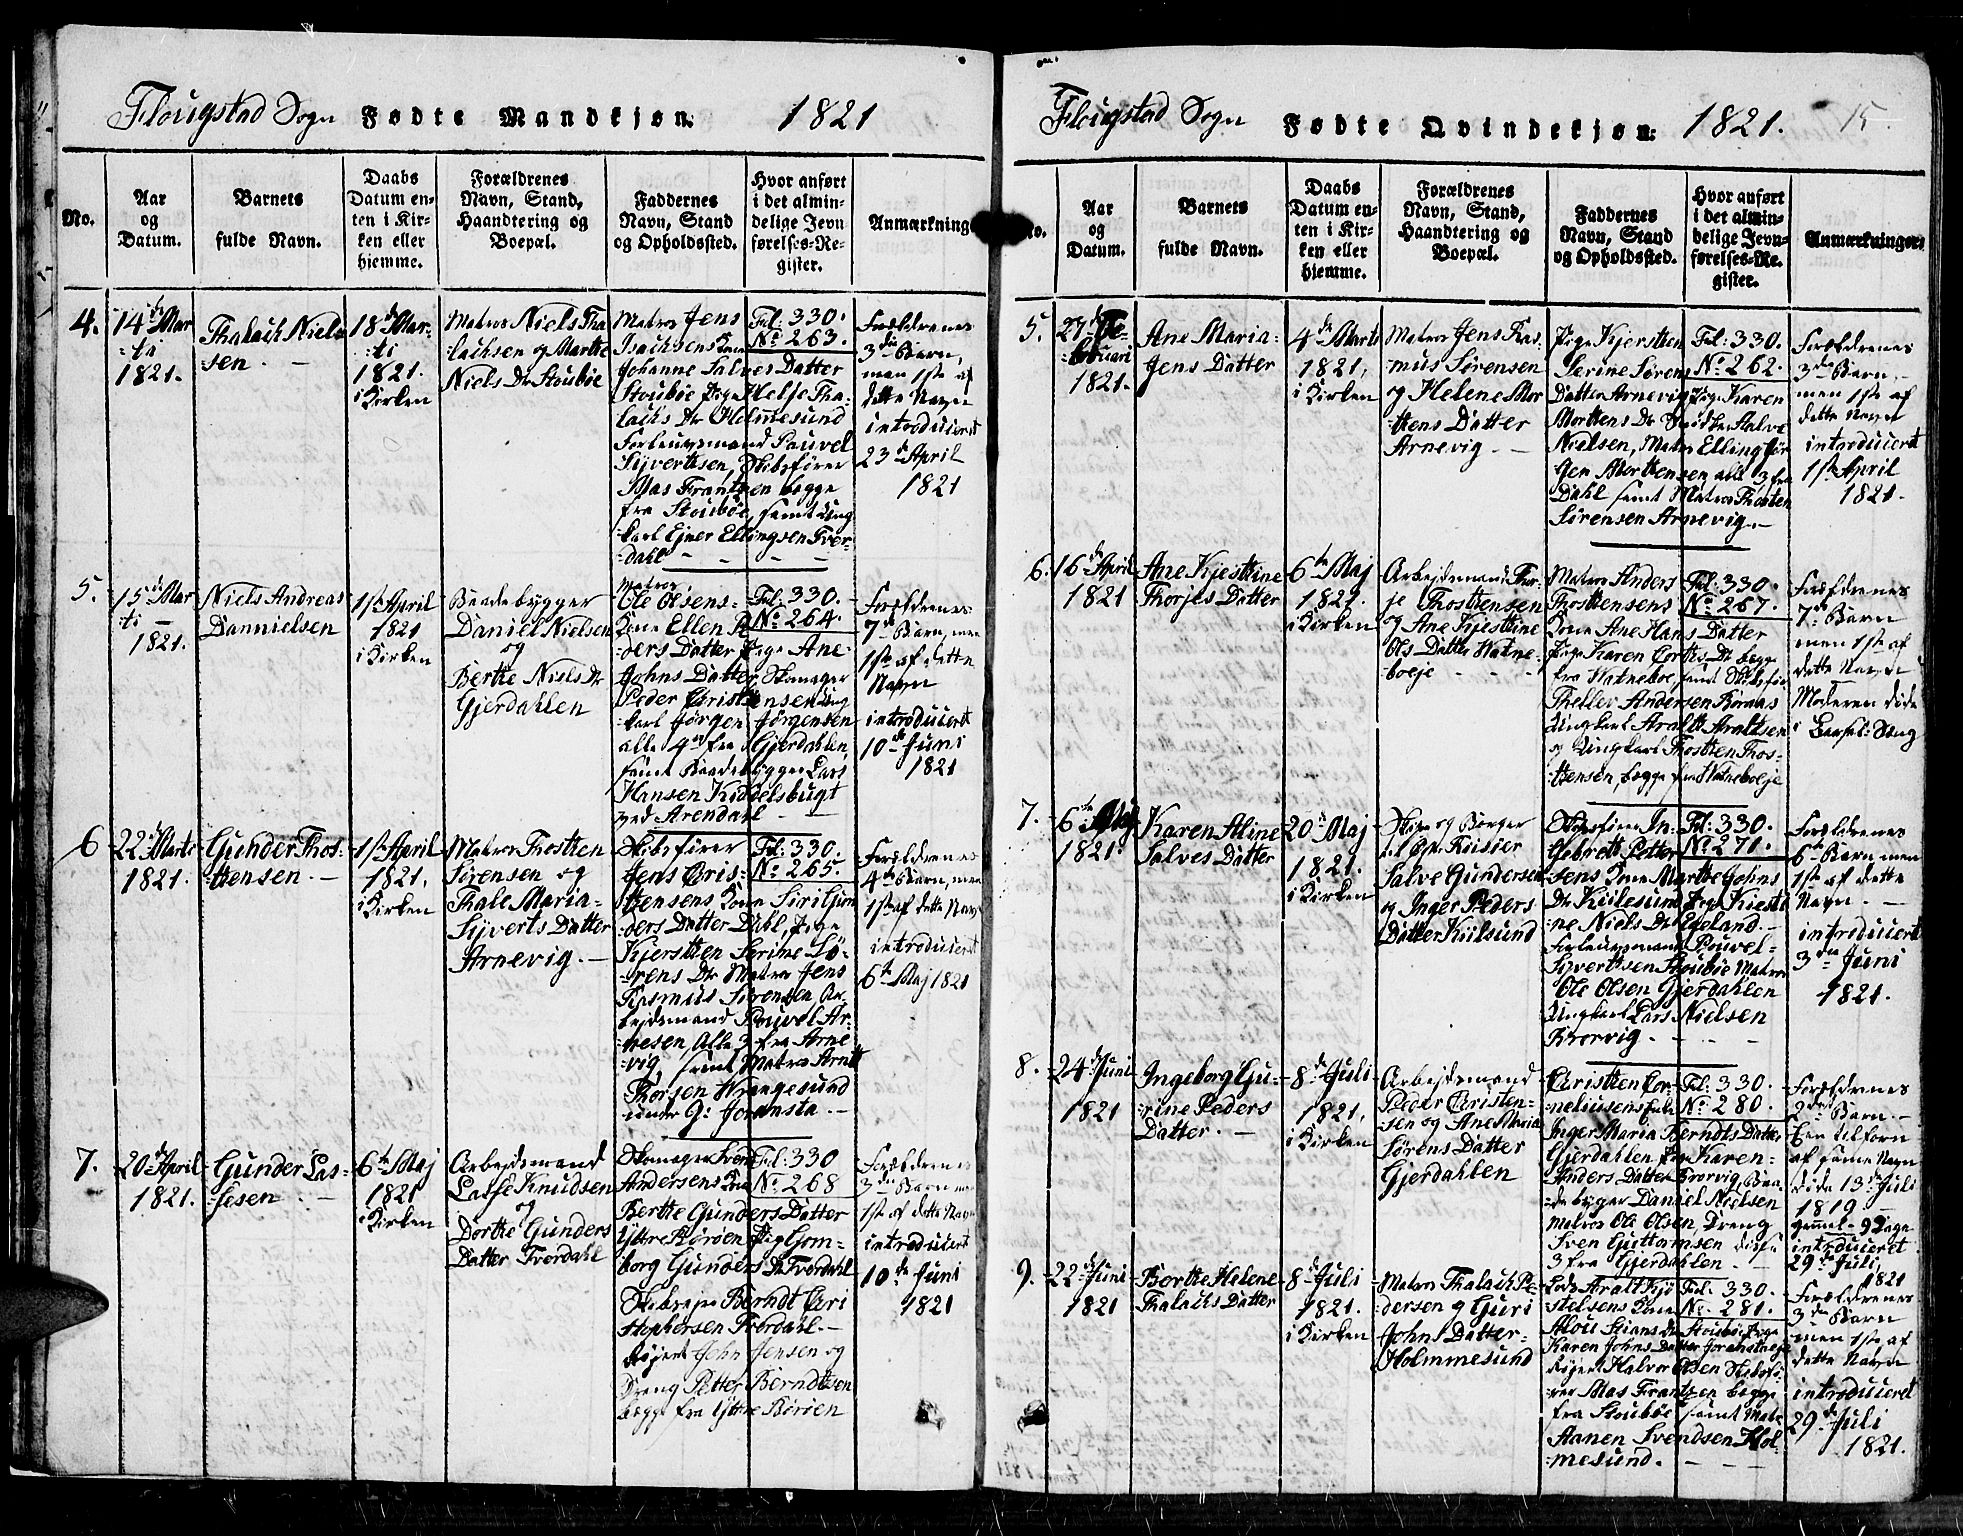 Flougstad Sogn Fødte Mandkjøn. 1821
No.
Aar
og
Datum.
Barnets
fulde Navn.
Daabs
Datum en-
ten i Kir-
ken eller
hjemme.
Forældrenes
Navn, Stand,
Haandtering og
Boepæl.
Faddernes
Navn, Stand
og Opholdssted.
Hvor anført
i det almin-
delige Jevn
førelses-Re-
gister.
Anmærkning
4.
14de Mar
-ti
1821.
Thalach Niels
sen. -
18de Mar-
-ti
1821.
i Kirken
Matros Niels Tha
lachsen og Marthe
Niels Dr Stoubøe
Matros Jens
Isachsens Kone
Johanne Salves Datter
Stoubøe Pige Helje Tha-
lachs Dr Holmesund
Forleugsmand Pauvel
Sivertsen, Skibsfører
Mas Frantzen begge
fra Stoubøe, samt Ung
karl Ejner Ellingsen Tver-
dahl
Fol: 330.
No 263.
Forældrenes
3die Barn,
men 1ste af
dette Navn
introduceret
23de April
1821
5.
15de Mar
ti -
1821.
Niels Andreas
Dannielsen
1ste April
1821
i Kirken
Baadebygger
Daniel Nielsen
og
Berthe Niels Dr
Gjerdahlen
Matros
Ole Olsens
Kone Ellen
ders Datter Pige Ane
Johns Datter, Skomager
Peder Christensen Ung
karl Jørgen Jørgensen
alle 4 fra Gjerdahlen
samt Baadebygger Lars
Hansen Kiddelsbugt
ved Arendahl
Fol: 330.
No 264.
Forældrenes
7de Barn, men
1ste af dette
Navn
introduceret
10de Juni
1821
6
22de Marti
1821.
Gunder Thos-
-tensen. -
1ste April
1821,
i Kirken
Matros Thosten
Sørensen og
Thale Maria
Siverts Datter
Arnevig. -
Skibsfører
Jens Cris-
tensens Kone Siri Gun
ders Datter Dahl, Pige
Kjersten Serine Sø-
rens Dr Matros Jens
Rasmus Sørensen, Ar-
bejdsmand Pouvel Ar-
nesen, Alle 3 fra Arne
vig, samt Matros Arnt
Thorsen Wrangesund
under G: Joransta. -
Fol: 330.
No 265.
Forældrenes
4de Barn, men
1ste af dette Navn
introduceret
6te Maj 1821
7.
20de April
1821.
Gunder Las-
-sesen. -
6te Maj
1821
i Kirken
Arbejdsmand
Lasse Knudsen
og
Dorthe Gunders
Datter Tverdahl
Skomager Sven
Andersens Kone
Berthe Gunders Datter
Yttre Børøen Pige Gom-
borg Gunders Dr Tverdahl
Berndt Cri
stophersen Tverdahl. -
John Jensen og
Dreng Petter Berndtsen
begge fra Yttre Børøen
Fol: 330
No 268
Forældrenes
3die Barn
1ste af dette Navn
introduceret
10de Juni
1821
Flougstad Sogn Fødte Qvindekjøn. 1821. 15.
No.
Aar
og
Datum.
Barnets
fulde Navn.
Daabs
Datum en-
ten i Kir-
ken eller
hjemme.
Forældrenes
Navn, Stand,
Haandtering og
Boepæl.
Faddernes
Navn, Stand
og Opholdssted.
Hvor anført
i det almin-
delige Jevn-
førelses-Re-
gister.
Anmærkninger
5.
27de Fe-
bruari
1821.
Ane Maria
Jens Datter
4de Marti
1821,
i Kirken
Matros Jens Ras
mus Sørensen
og Helene Mor
-tens Datter
Arnevig. -
Pige Kjersten
Serine Sørens
Datter Arnevig, Pige Karen
Mortens Dr Salve
Nielsen, Matros Elling Jør
gen Mortensen alle 3 fra
Dahl samt Matros Thosten
Sørensen Arnevig. -
Fol: 330.
No 262.
Forældrenes
3die Barn,
men 1ste af
dette Navn
introduceret
1ste April
1821.
6.
16de April
1821
Ane Kjestine
Thorjes Datter
6te Maj
1821.
i Kirken
Arbejdsmand Thor-
je Thostensen
og Ane Kjestine
Ols Datter Watne-
boeje
Matros Anders
Thostensens
Kone Ane Hans Datter
Pige Karen Dr begge
fra Watneboe, samt Skibsfør
Thellev Andersen Børaas
Ungkarl Aralt Araltsen
og Ungkarl Thosten Thos-
tensen, begge fra Watneboeje
Fol: 330.
No 267.
Forældrenes
7de Barn
men 1ste af
dette Navn
Moderen døde
i Barsel-Seng
7.
6te Maj
1821.
Karen Aline
Salves Datter
20de Maj
1821.
i Kirken
Salve Gundersen
og Inger Peders
Datter Kiilsund
Skibsfører In-
gebreth Petter
sens Kone Marthe Johns
Dr Kiilesund Pige Kiesti
ne Niels Dr Egeland. -
Forleugsmand Pouvel
Sivertsen Stoubøe Matros
Ole Olsen Gjerdahlen
Ungkarl Lars Nielsen
Krorvig. -
Fol: 330.
No 271.
Forældrenes
6te Barn men
1ste af dette
Navn. -
introduceret
3die Juni
1821.
8.
24de Juni
1821
Ingeborg Gu-
-rine Peders
Datter. -
8de Juli
1821,
i Kirken
Arbejdsmand
Peder Cristen-
sen og Ane Maria
Sørens Datter
Gjerdahlen
Cristen Cor-
neliusens
Inger Maria Berndts Datter
Gjerdahlen, Pige Karen
Anders Datter Krorvig, Baa-
debyger Daniel Nielsen
Matros Ole Olsen, Dreng
Sven Guttormsen disse
3 fra Gjerdahlen. -
Fol: 330.
No 280.
Forældrenes
2det Barn. -
Een tilforn
af samme Navn
døde 13de Juli
1819 -
gammel - 9 Dage
introduceret
29de Juli,
1821
9.
22de Juni
1821
Berthe Helene
Thalachs Datter
8de Juli
1821.
i Kirken
Matros Thalach Pe-
dersen og Guri
Johns Datter
Holmmesund
Lods Aralt Kjø-
stelsens Kone
Stians Dr Stoubøe, Pige
Karen Johns Datter
Halvor Olsen Skibsfø-
rer Mas Frantzen begge
fra Stoubøe samt Matr.
Aanen Svendsen Hol-
mesund.
Fol: 330.
No 281.
Forældrenes
3die Barn
men 1ste af
dette Navn
introduceret
29de Juli
1821.